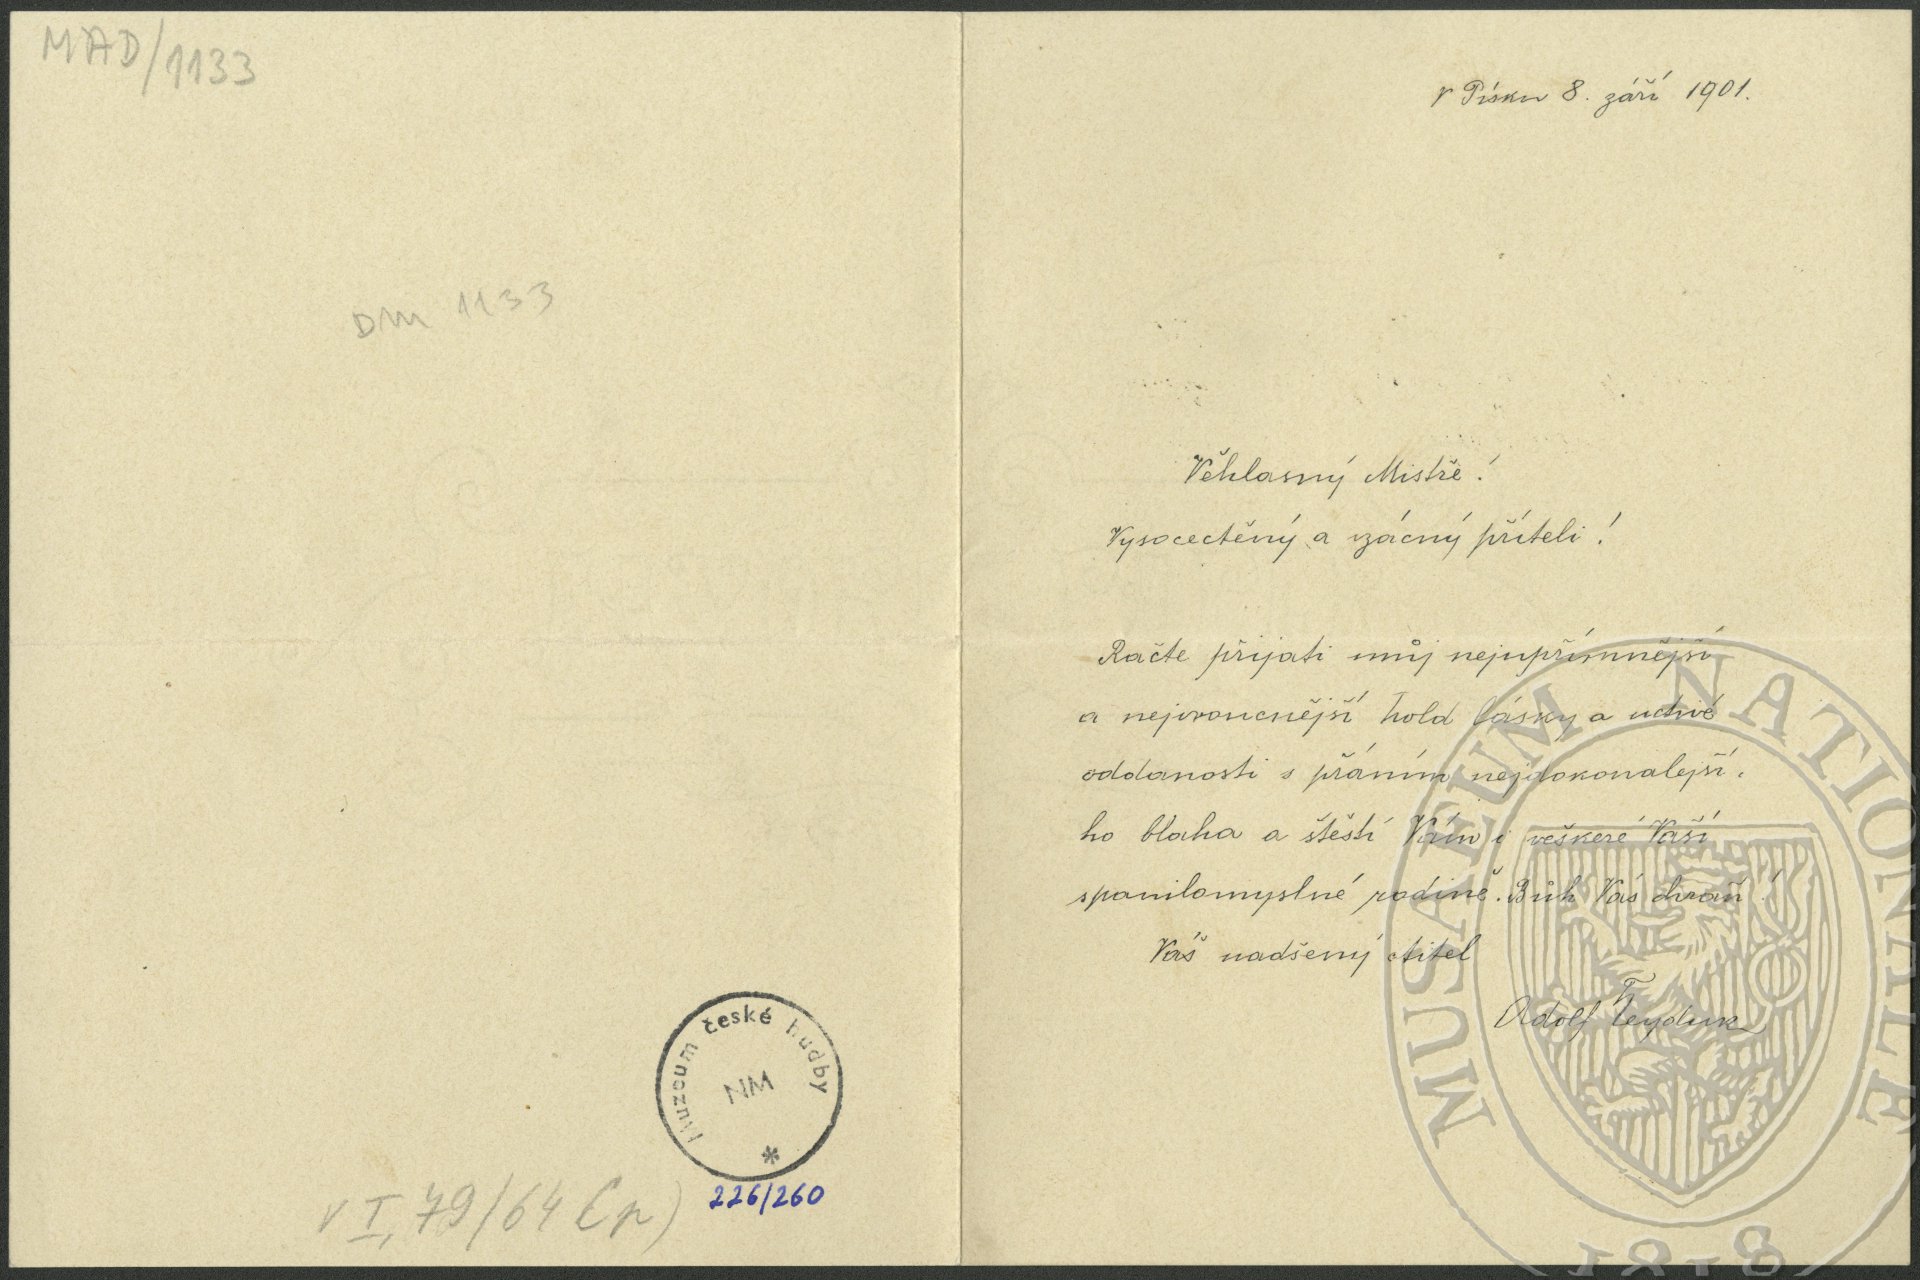 MAD/1133
DM 1133
Muzeum české hudby
NM
*
226/260
v I, 79/64 Čp)
V Písku 8. září 1901.
Věhlasný Mistře!
Vysocectěný a vzácný příteli!
Račte přijati můj nejupřímnější
a nejvroucnější hold lásky a uctivé
oddanosti s přáním nejdokonalejší-
ho blaha a štěstí Vám i veškeré Vaší
spanilomyslné rodině. Bůh Vás chraň!
Váš nadšený ctitel
Adolf Heyduk
MUSAEUM NATIONALE
1818